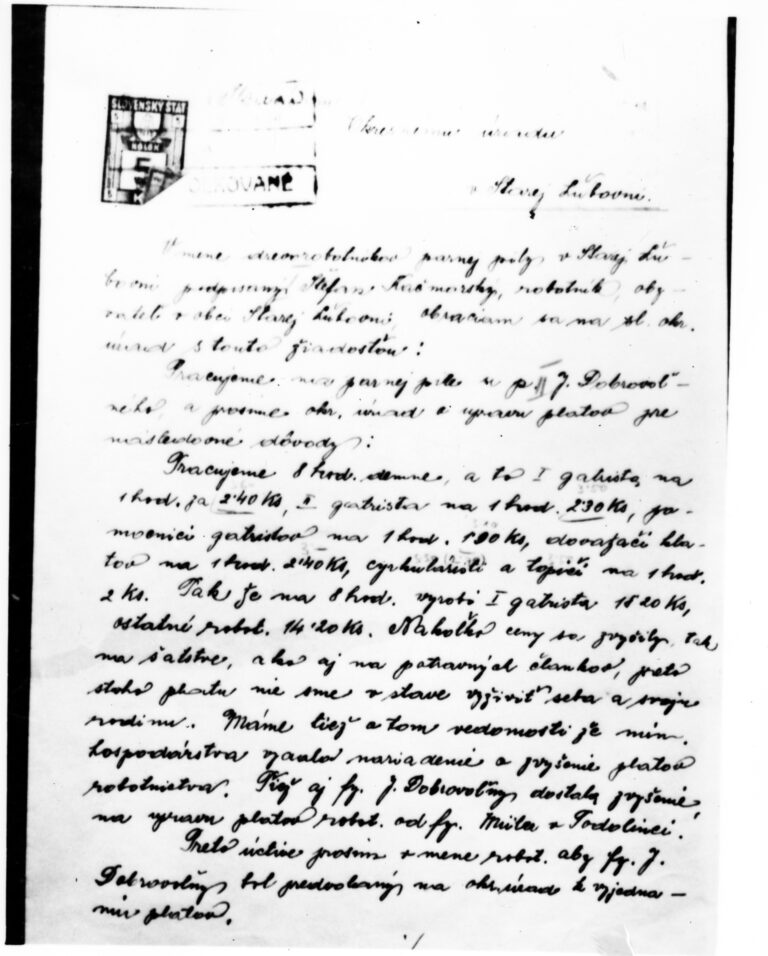 SLOVENSKÝ ŠTÁT
KOLOK
5
K
OLKOVANÉ
Okresnému úradu
v Starej Ľubovni.
V mene drevorobotníkov parnej pily v Starej Ľu-
bovni podpísaný Štefan Kačmarský, robotník, oby-
vateľ v obci Starej Ľubovni, obraciam sa na sl. okr.
úrad s touto žiadosťou:
Pracujeme na parnej pile u p. J. Dobrovoľ-
ného, a prosíme okr. úrad o upravu platov pre
nasledovné dôvody:
Pracujeme 8 hod. denne, a to I gatrista na
1 hod. za 2'40 Ks, II gatrista na 1 hod. 2'30 Ks, po-
mocníci gatristov na 1 hod. 1'90 Ks, dovažači kla-
tov na 1 hod. 2'40 Ks, cyrkularisti a topiči na 1 hod.
2 Ks. Tak že na 8 hod. vyrobí I gatrista 18'20 Ks,
ostatné robot. 14'20 Ks. Nakoľko ceny sa zvyšily tak
na šatstve, ako aj na potravných člankov, preto
stoho platu nie sme v stave vyživiť seba a svoju
rodinu. Máme tiež o tom vedomosti že min.
hospodárstva vydalo nariadenie o zvyšenie platov
robotnictva. Tiež aj fy. J. Dobrovoľny dostala zvyšenie
na upravu platov robot. od fy. v Podolinci.
Preto úctive prosím v mene robot. aby fy. J.
Dobrovoľny bol predvolaný na okr. úrad k vyjedna-
niu platov.
./